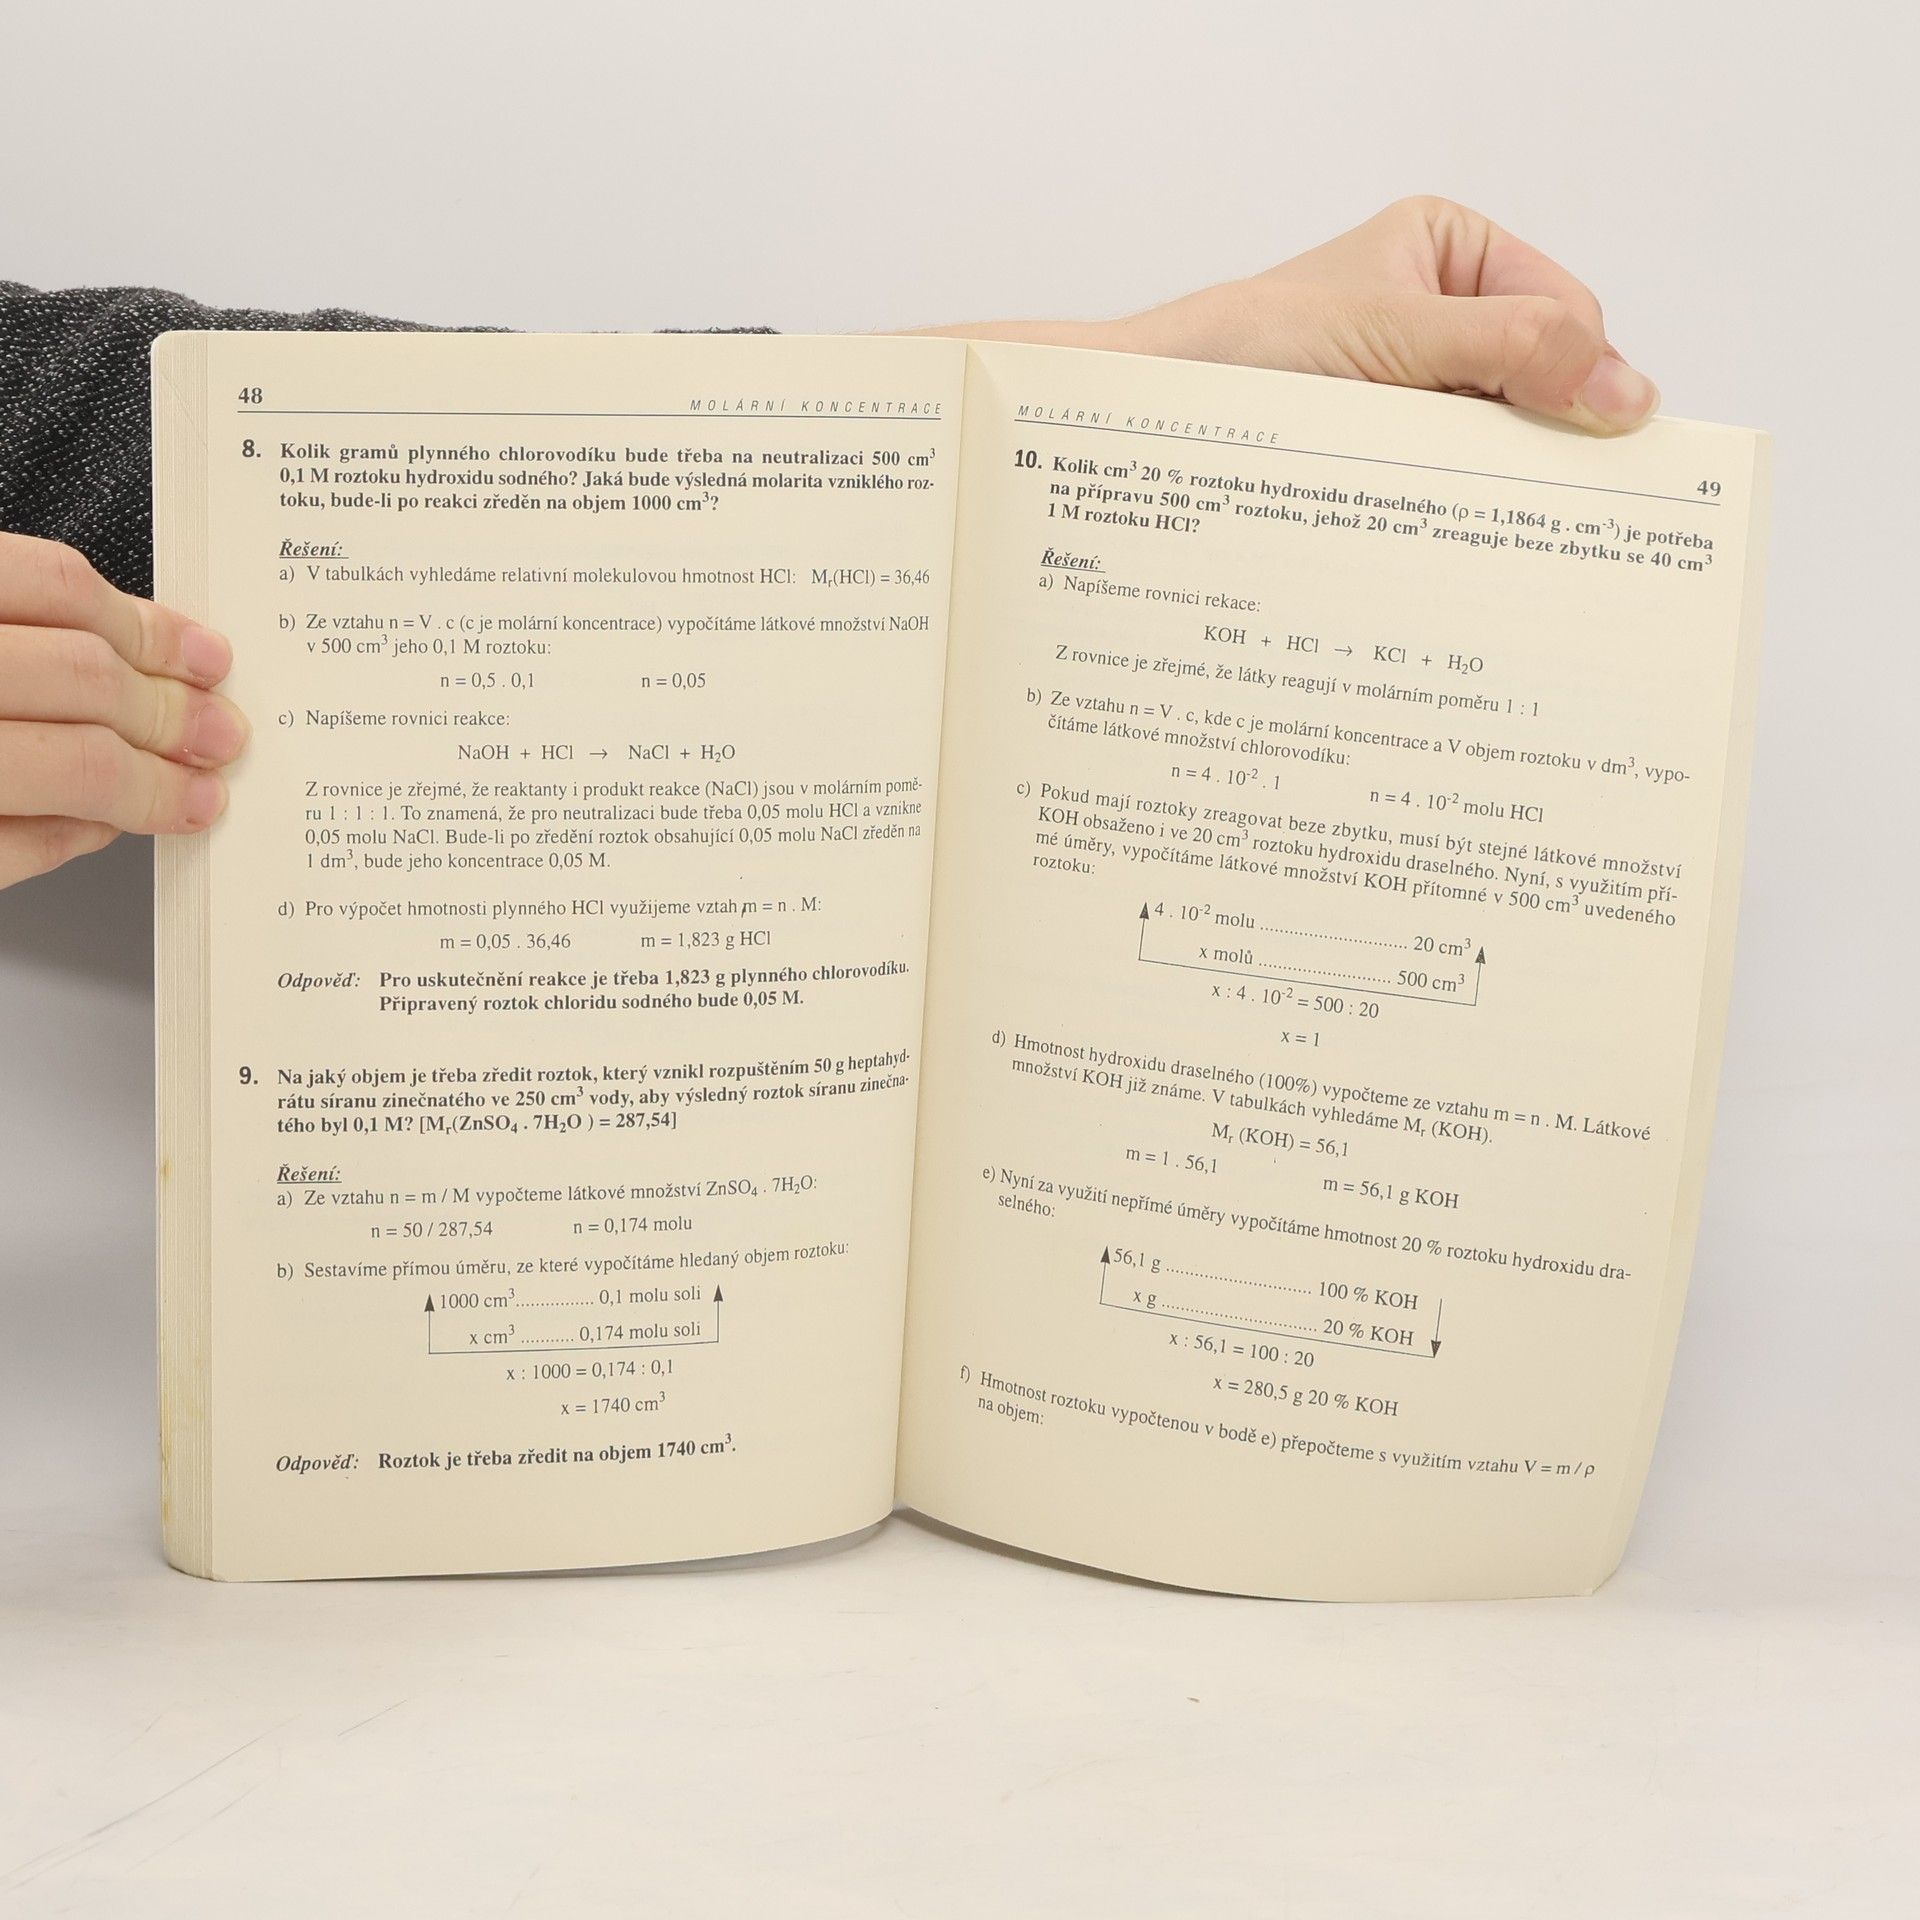 48
MOLÁRNÍ KONCENTRACE
8. Kolik gramů plynného chlorovodíku bude třeba na neutralizaci 500 cm³
0,1 M roztoku hydroxidu sodného? Jaká bude výsledná molarita vzniklého roz-
toku, bude-li po reakci zředěn na objem 1000 cm³?
Řešení:
a) V tabulkách vyhledáme relativní molekulovou hmotnost HCl: Mᵣ(HCl) = 36,46
b) Ze vztahu n = V . c (c je molární koncentrace) vypočítáme látkové množství NaOH
v 500 cm³ jeho 0,1 M roztoku:
n = 0,5 . 0,1 n = 0,05
c) Napíšeme rovnici reakce:
NaOH + HCl → NaCl + H₂O
Z rovnice je zřejmé, že reaktanty i produkt reakce (NaCl) jsou v molárním pomě-
ru 1 : 1 : 1. To znamená, že pro neutralizaci bude třeba 0,05 molu HCl a vznikne
0,05 molu NaCl. Bude-li po zředění roztok obsahující 0,05 molu NaCl zředěn na
1 dm³, bude jeho koncentrace 0,05 M.
d) Pro výpočet hmotnosti plynného HCl využijeme vztah m = n . M:
m = 0,05 . 36,46 m = 1,823 g HCl
Odpověď: Pro uskutečnění reakce je třeba 1,823 g plynného chlorovodíku.
Připravený roztok chloridu sodného bude 0,05 M.
9. Na jaký objem je třeba zředit roztok, který vznikl rozpuštěním 50 g heptahyd-
rátu síranu zinečnatého ve 250 cm³ vody, aby výsledný roztok síranu zinečna-
tého byl 0,1 M? [Mᵣ(ZnSO₄ . 7H₂O ) = 287,54]
Řešení:
a) Ze vztahu n = m / M vypočteme látkové množství ZnSO₄ . 7H₂O:
n = 50 / 287,54 n = 0,174 molu
b) Sestavíme přímou úměru, ze které vypočítáme hledaný objem roztoku:
1000 cm³................ 0,1 molu soli
x cm³ ........... 0,174 molu soli
x : 1000 = 0,174 : 0,1
x = 1740 cm³
Odpověď: Roztok je třeba zředit na objem 1740 cm³.
MOLÁRNÍ KONCENTRACE
49
10. Kolik cm³ 20 % roztoku hydroxidu draselného (ρ = 1,1864 g . cm⁻³) je potřeba
na přípravu 500 cm³ roztoku, jehož 20 cm³ zreaguje beze zbytku se 40 cm³
1 M roztoku HCl?
Řešení:
a) Napíšeme rovnici rekace:
KOH + HCl → KCl + H₂O
Z rovnice je zřejmé, že látky reagují v molárním poměru 1 : 1
b) Ze vztahu n = V . c, kde c je molární koncentrace a V objem roztoku v dm³, vypo-
čítáme látkové množství chlorovodíku:
n = 4 . 10⁻² . 1 n = 4 . 10⁻² molu HCl
c) Pokud mají roztoky zreagovat beze zbytku, musí být stejné látkové množství
KOH obsaženo i ve 20 cm³ roztoku hydroxidu draselného. Nyní, s využitím pří-
mé úměry, vypočítáme látkové množství KOH přítomné v 500 cm³ uvedeného
roztoku:
4 . 10⁻² molu .............................. 20 cm³
x molů ........................... 500 cm³
x : 4 . 10⁻² = 500 : 20
x = 1
d) Hmotnost hydroxidu draselného (100%) vypočteme ze vztahu m = n . M. Látkové
množství KOH již známe. V tabulkách vyhledáme Mᵣ (KOH).
Mᵣ (KOH) = 56,1
m = 1 . 56,1 m = 56,1 g KOH
e) Nyní za využití nepřímé úměry vypočítáme hmotnost 20 % roztoku hydroxidu dra-
selného:
56,1 g .............................. 100 % KOH
x g ................................ 20 % KOH
x : 56,1 = 100 : 20
x = 280,5 g 20 % KOH
f) Hmotnost roztoku vypočtenou v bodě e) přepočteme s využitím vztahu V = m / ρ
na objem: